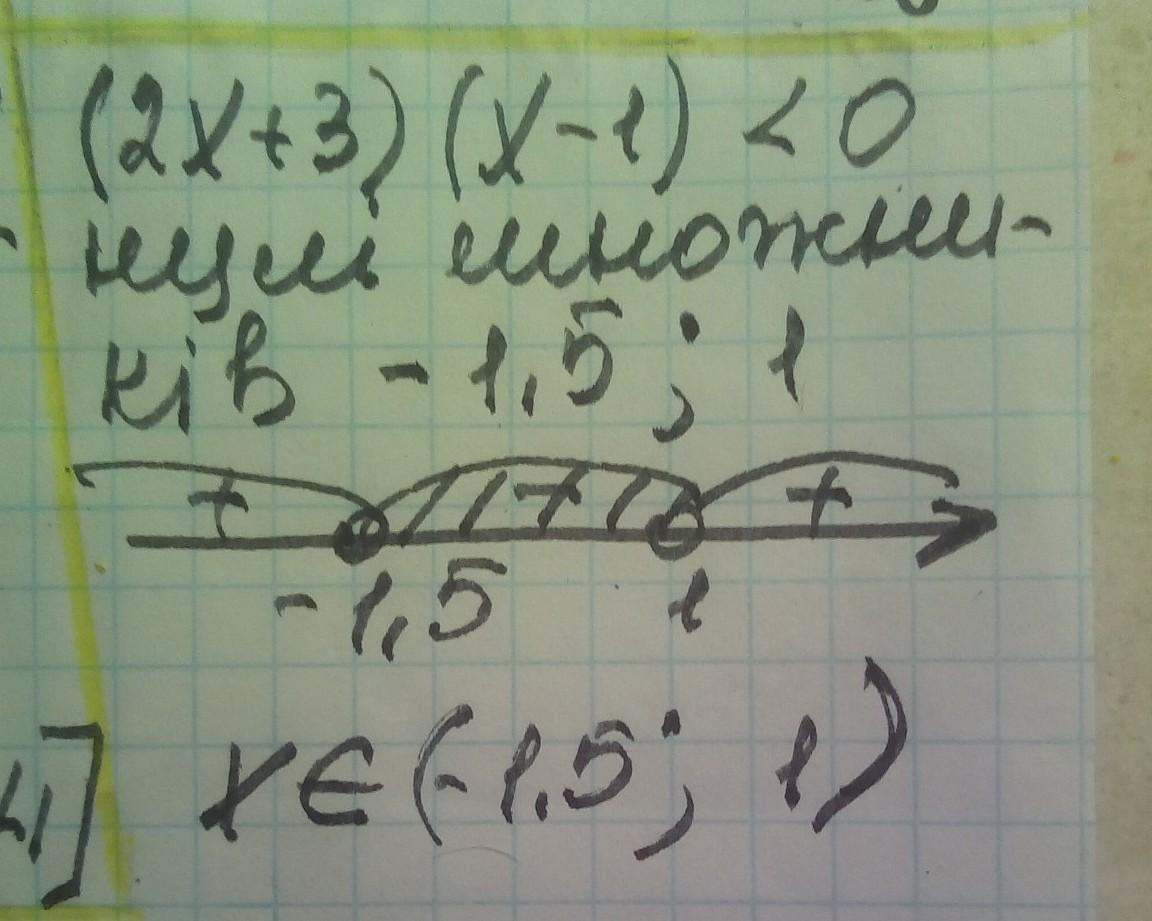 (2x+3)(x-1) < 0
нулі множни-
ків -1,5 ; 1
+ + +
-1,5 1
4] x∈(-1,5; 1)